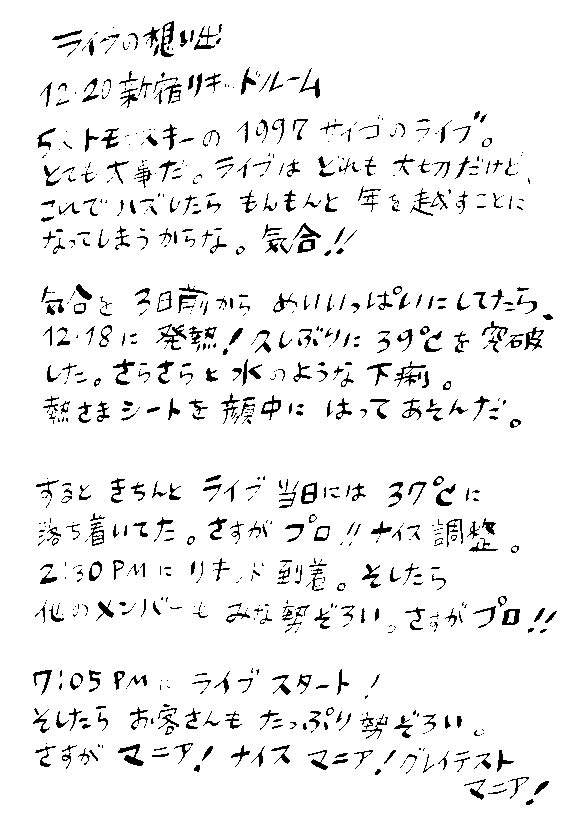 ライヴの想い出!
12・20新宿リキッドルーム
5人トモフスキーの 1997 サイゴのライブ。
とても大事だ。ライブは どれも 大切だけど、
これでハズしたら もんもんと 年を越すことに
なってしまうからな。気合!!
気合を 3日前から めいいっぱいにしてたら、
12・18に 発熱!久しぶりに 39℃を突破
した。さらさらと水のような下痢。
熱さまシートを 顔中に はってあそんだ。
すると きちんと ライブ当日には 37℃に
落ち着いてた。さすが プロ!!ナイス調整。
2:30PMに リキッド到着。そしたら
他のメンバーも みな勢ぞろい。さすがプロ!!
7:05PMに ライブ スタート!
そしたら お客さんも たっぷり勢ぞろい。
さすが マニア!ナイス マニア!グレイテスト
マニア!